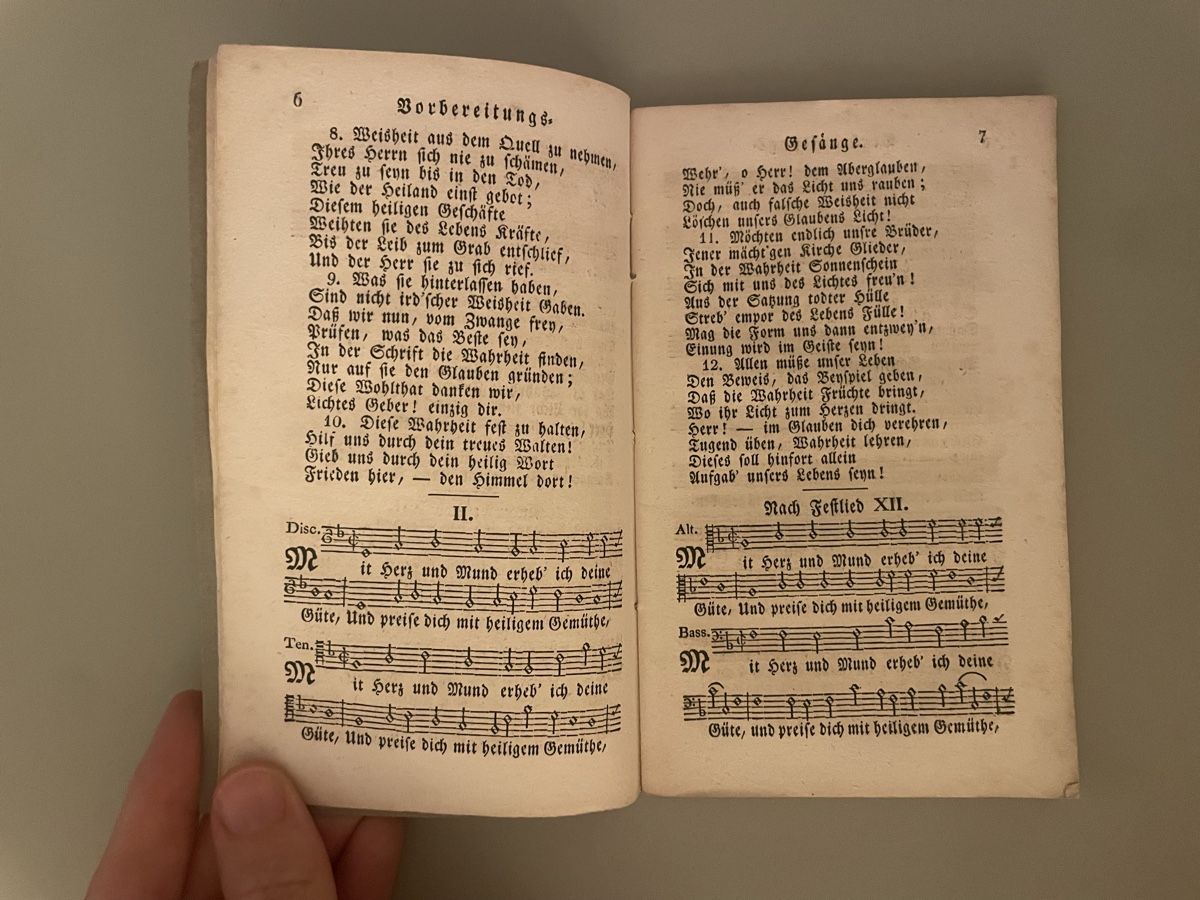 6
Vorbereitungs-
8. Weisheit aus dem Quell zu nehmen,
Ihres Herrn sich nie zu schämen,
Treu zu seyn bis in den Tod,
Wie der Heiland einst gebot;
Diesem heiligen Geschäfte
Weihten sie des Lebens Kräfte,
Bis der Leib zum Grab entschlief,
Und der Herr sie zu sich rief.
9. Was sie hinterlassen haben,
Sind nicht ird'scher Weisheit Gaben.
Daß wir nun, vom Zwange frey,
Prüfen, was das Beste sey,
In der Schrift die Wahrheit finden,
Nur auf sie den Glauben gründen;
Diese Wohlthat danken wir,
Lichtes Geber! einzig dir.
10. Diese Wahrheit fest zu halten,
Hilf uns durch dein treues Walten!
Gieb uns durch dein heilig Wort
Frieden hier, — den Himmel dort!
II.
Disc.
Mit Herz und Mund erheb' ich deine
Güte, Und preise dich mit heiligem Gemüthe,
Ten.
Mit Herz und Mund erheb' ich deine
Güte, Und preise dich mit heiligem Gemüthe,
Gesänge.
7
Wehr', o Herr! dem Aberglauben,
Nie müß' er das Licht uns rauben;
Doch, auch falsche Weisheit nicht
Löschen unsers Glaubens Licht!
11. Möchten endlich unsre Brüder,
Jener mächt'gen Kirche Glieder,
In der Wahrheit Sonnenschein
Sich mit uns des Lichtes freu'n!
Aus der Satzung todter Hülle
Streb' empor des Lebens Fülle!
Mag die Form uns dann entzwey'n,
Einung wird im Geiste seyn!
12. Allen müße unser Leben
Den Beweis, das Beyspiel geben,
Daß die Wahrheit Früchte bringt,
Wo ihr Licht zum Herzen dringt.
Herr! — im Glauben dich verehren,
Tugend üben, Wahrheit lehren,
Dieses soll hinfort allein
Aufgab' unsers Lebens seyn!
Nach Festlied XII.
Alt.
Mit Herz und Mund erheb' ich deine
Güte, Und preise dich mit heiligem Gemüthe,
Bass.
Mit Herz und Mund erheb' ich deine
Güte, und preise dich mit heiligem Gemüthe,